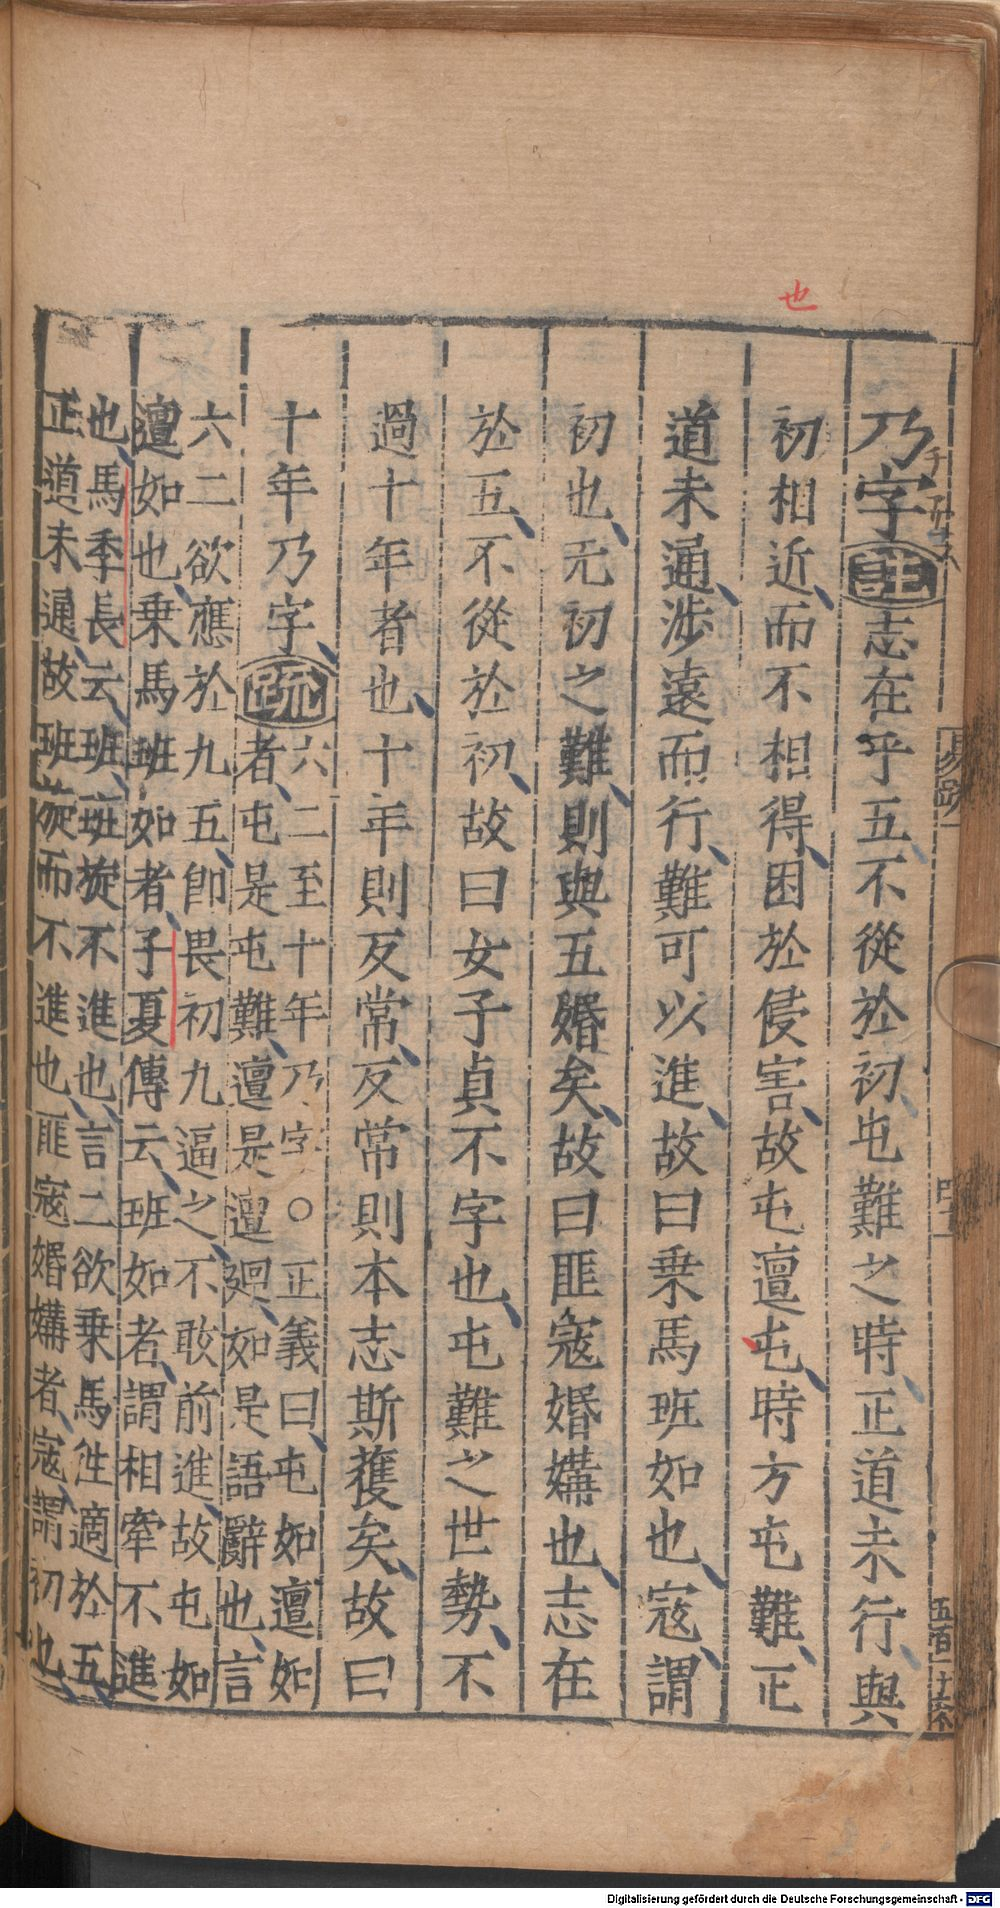 也
乃字註志在乎五不從於初屯難之時正道未行與
初相近而不相得困於侵害故屯邅屯時方屯難正
道未通涉遠而行難可以進故曰乗馬班如也寇謂
初也无初之難則與五婚矣故曰匪寇婚媾也志在
於五不從於初故曰女子貞不字也屯難之世勢不
過十年者也十年則反常反常則本志斯獲矣故曰
十年乃字疏
六二至十年乃字○正義曰屯如邅如
者屯是屯難邅是邅迴如是語辭也言
六二欲應於九五即畏初九逼之不敢前進故屯如
邅如也乗馬班如者子夏傳云班如者謂相牽不進
也馬季長云班班旋不進也言二欲乗馬徃適於五
正道未通故班旋而不進也匪寇婚媾者寇謂初也
易疏
Digitalisierung gefördert durch die Deutsche Forschungsgemeinschaft - DFG